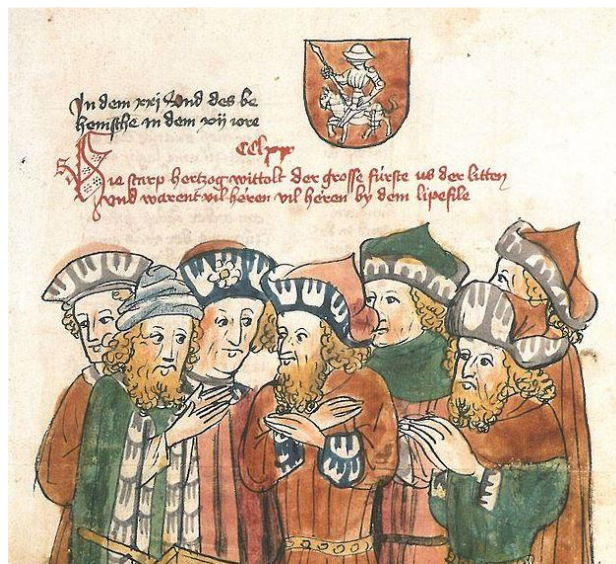 In dem xxj Vnd des be
hemische in dem xvij iore
CClxx
Hie starp hertzog wittolt der grosse fürste us der litten
vnd warent vil heren vil heren by dem lipefile